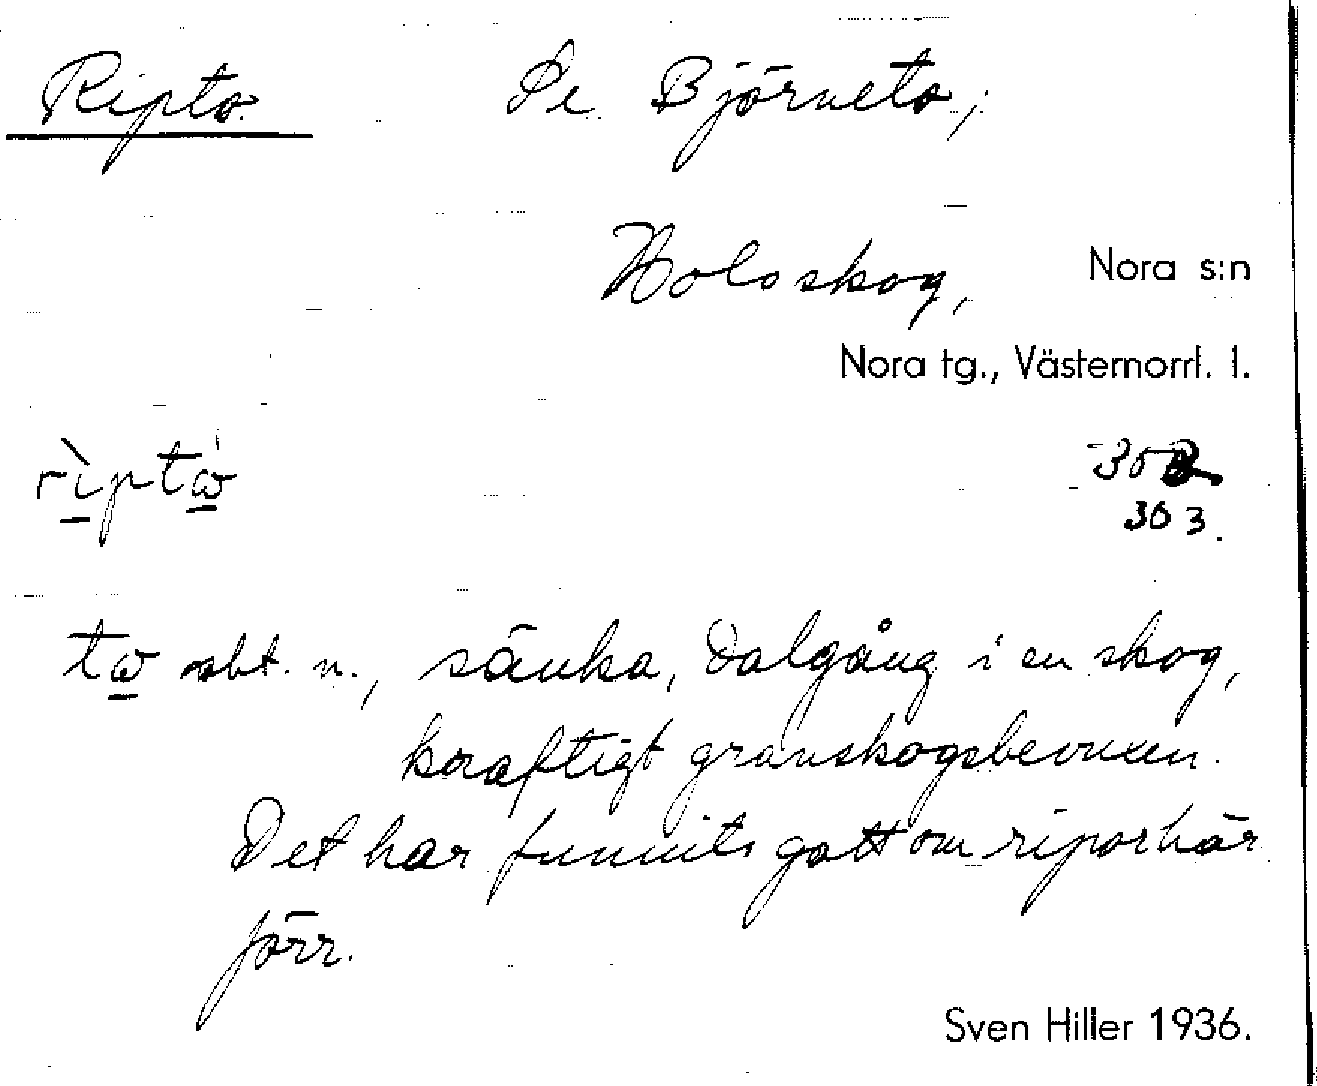 Ripto. Se Björneto;
Holoskog, Nora s:n
Nora tg., Västernorrl. l.
rìptὼ
303.
tω sbt. n., sänka, dalgång i en skog,
kraftigt granskogsbevuxen.
Det har funnits gott om ripor här
förr.
Sven Hiller 1936.